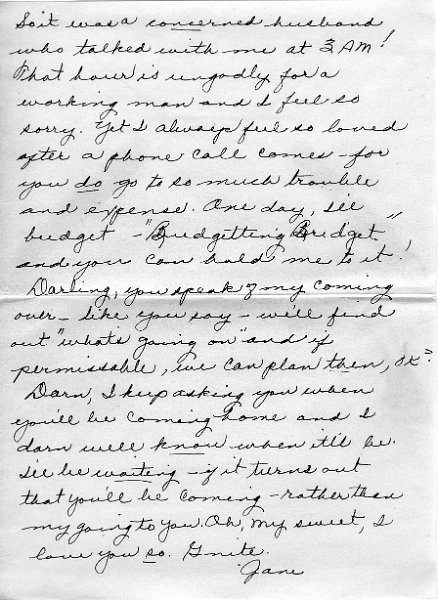 So it was a concerned husband
who talked with me at 3 AM!
That hour is ungodly for a
working man and I feel so
sorry. Yet I always feel so loved
after a phone call comes - for
you do go to so much trouble
and expense. One day, I'll
budget - "Budgetting Bridget"
and you can hold me to it!
Darling, you speak of my coming
over - like you say - we'll find
out "what's going on" and if
permissable, we can plan then, OK?
Darn, I keep asking you when
you'll be coming home and I
darn well know when it'll be.
I'll be waiting - if it turns out
that you'll be coming - rather than
my going to you. Oh, my sweet, I
love you so. G'nite.
Jane